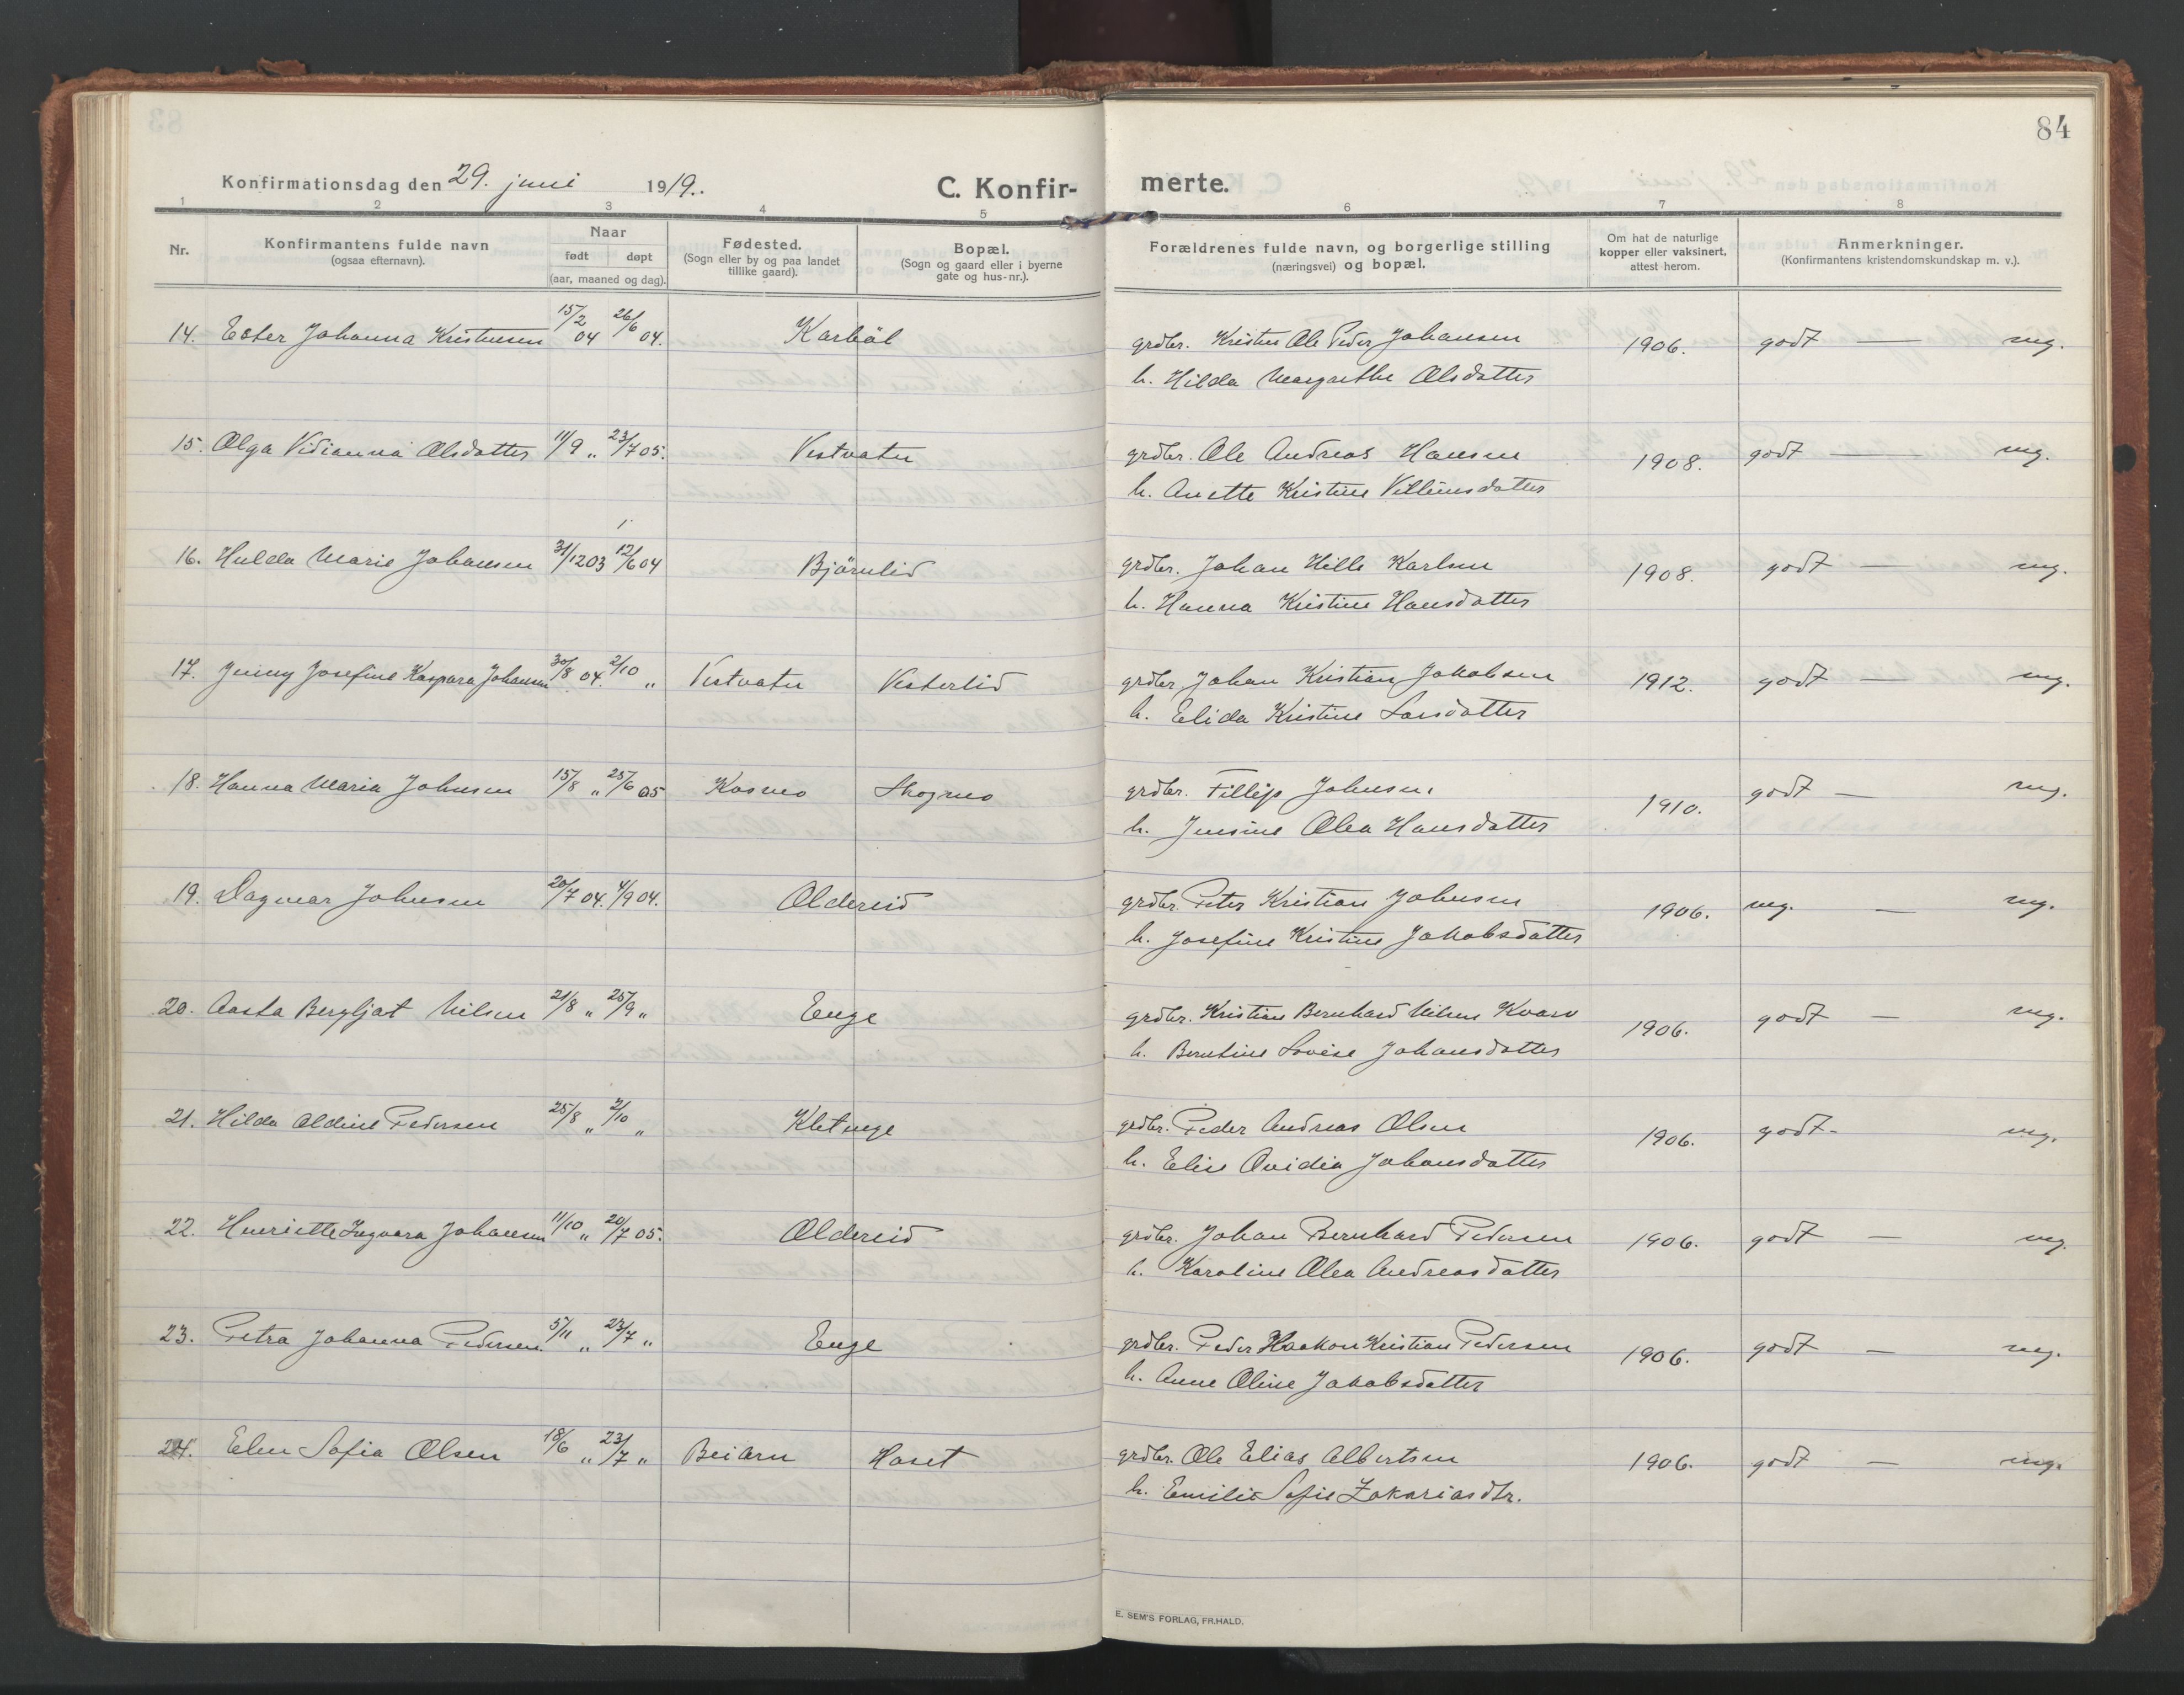 84
Konfirmationsdag den 29. juni 1919.
C. Konfir-
merte.
1 2 3 4 5 6 7 8
Nr.
Konfirmantens fulde navn
(ogsaa efternavn).
Naar
født døpt
(aar, maaned og dag).
Fødested.
(Sogn eller by og paa landet
tillike gaard).
Bopæl.
(Sogn og gaard eller i byerne
gate og hus-nr.).
Forældrenes fulde navn, og borgerlige stilling
(næringsvei) og bopæl.
Om hat de naturlige
kopper eller vaksinert,
attest herom.
Anmerkninger.
(Konfirmantens kristendomskundskap m. v.).
14. Ester Johanna Kristensen 15/2 04 26/6 04. Karbøl grdbr. Kristen Ole Peder Johansen 1906. godt — ug.
h. Hilda Margrethe Olsdatter
15. Olga Vidianna Olsdatter 11/9 „ 23/7 05. Vestvatn grdbr. Ole Andreas Hansen 1908. godt — ug.
h. Anette Kristine Villumsdatter
16. Hulda Marie Johansen 31/12 03 12/6 04 Björnlid grdbr. Johan Hille Karlsen 1908. godt — ug.
h. Hanna Kristine Hansdatter
17. Jenny Josefine Kaspara Johansen 30/8 04. 2/10 „ Vestvatn Vesterlid grdbr Johan Kristian Jakobsen 1912. godt — ug.
h. Elida Kristine Larsdatter
18. Hanna Maria Johnsen 15/8 „ 25/6 05 Kosmo Skogmo grdbr. Fillip Johnsen. 1910. godt — ug.
h. Jensine Olea Hansdatter
19. Dagmar Johnsen 20/7 04. 4/9 04. Oldereid grdbr. Peter Kristian Johnsen 1906. ug. — ug.
h. Josefine Kristine Jakobsdatter
20. Aasta Bergljot Nilsen 21/8 „ 25/9 „ Enge grdbr. Kristian Bernhard Nilsen Kvarv 1906. godt — ug.
h. Berntine Lovise Johansdatter
21. Hilda Aldine Pedersen 25/8 „ 2/10 „ Kletenge grdbr. Peder Andreas Olsen 1906. godt- ug.
h. Elise Ovidia Johansdatter
22. Henriette Ingvara Johansen 11/10 „ 20/7 05. Oldereid grdbr. Johan Bernhard Pedersen 1906. godt — ug.
h. Karoline Olea Andreasdatter
23. Petra Johanna Pedersen 5/11 „ 23/7 „ Enge grdbr. Peder Haakon Kristian Pedersen 1906. godt — ug.
h. Anne Oline Jakobsdatter
24. Elen Sofia Olsen 18/6 „ 23/7 „ Beiarn Haset grdbr. Ole Elias Albertsen 1906. godt — ug.
h. Emilie Sofie Zakariasdtr.
E. SEM'S FORLAG, FR.HALD.